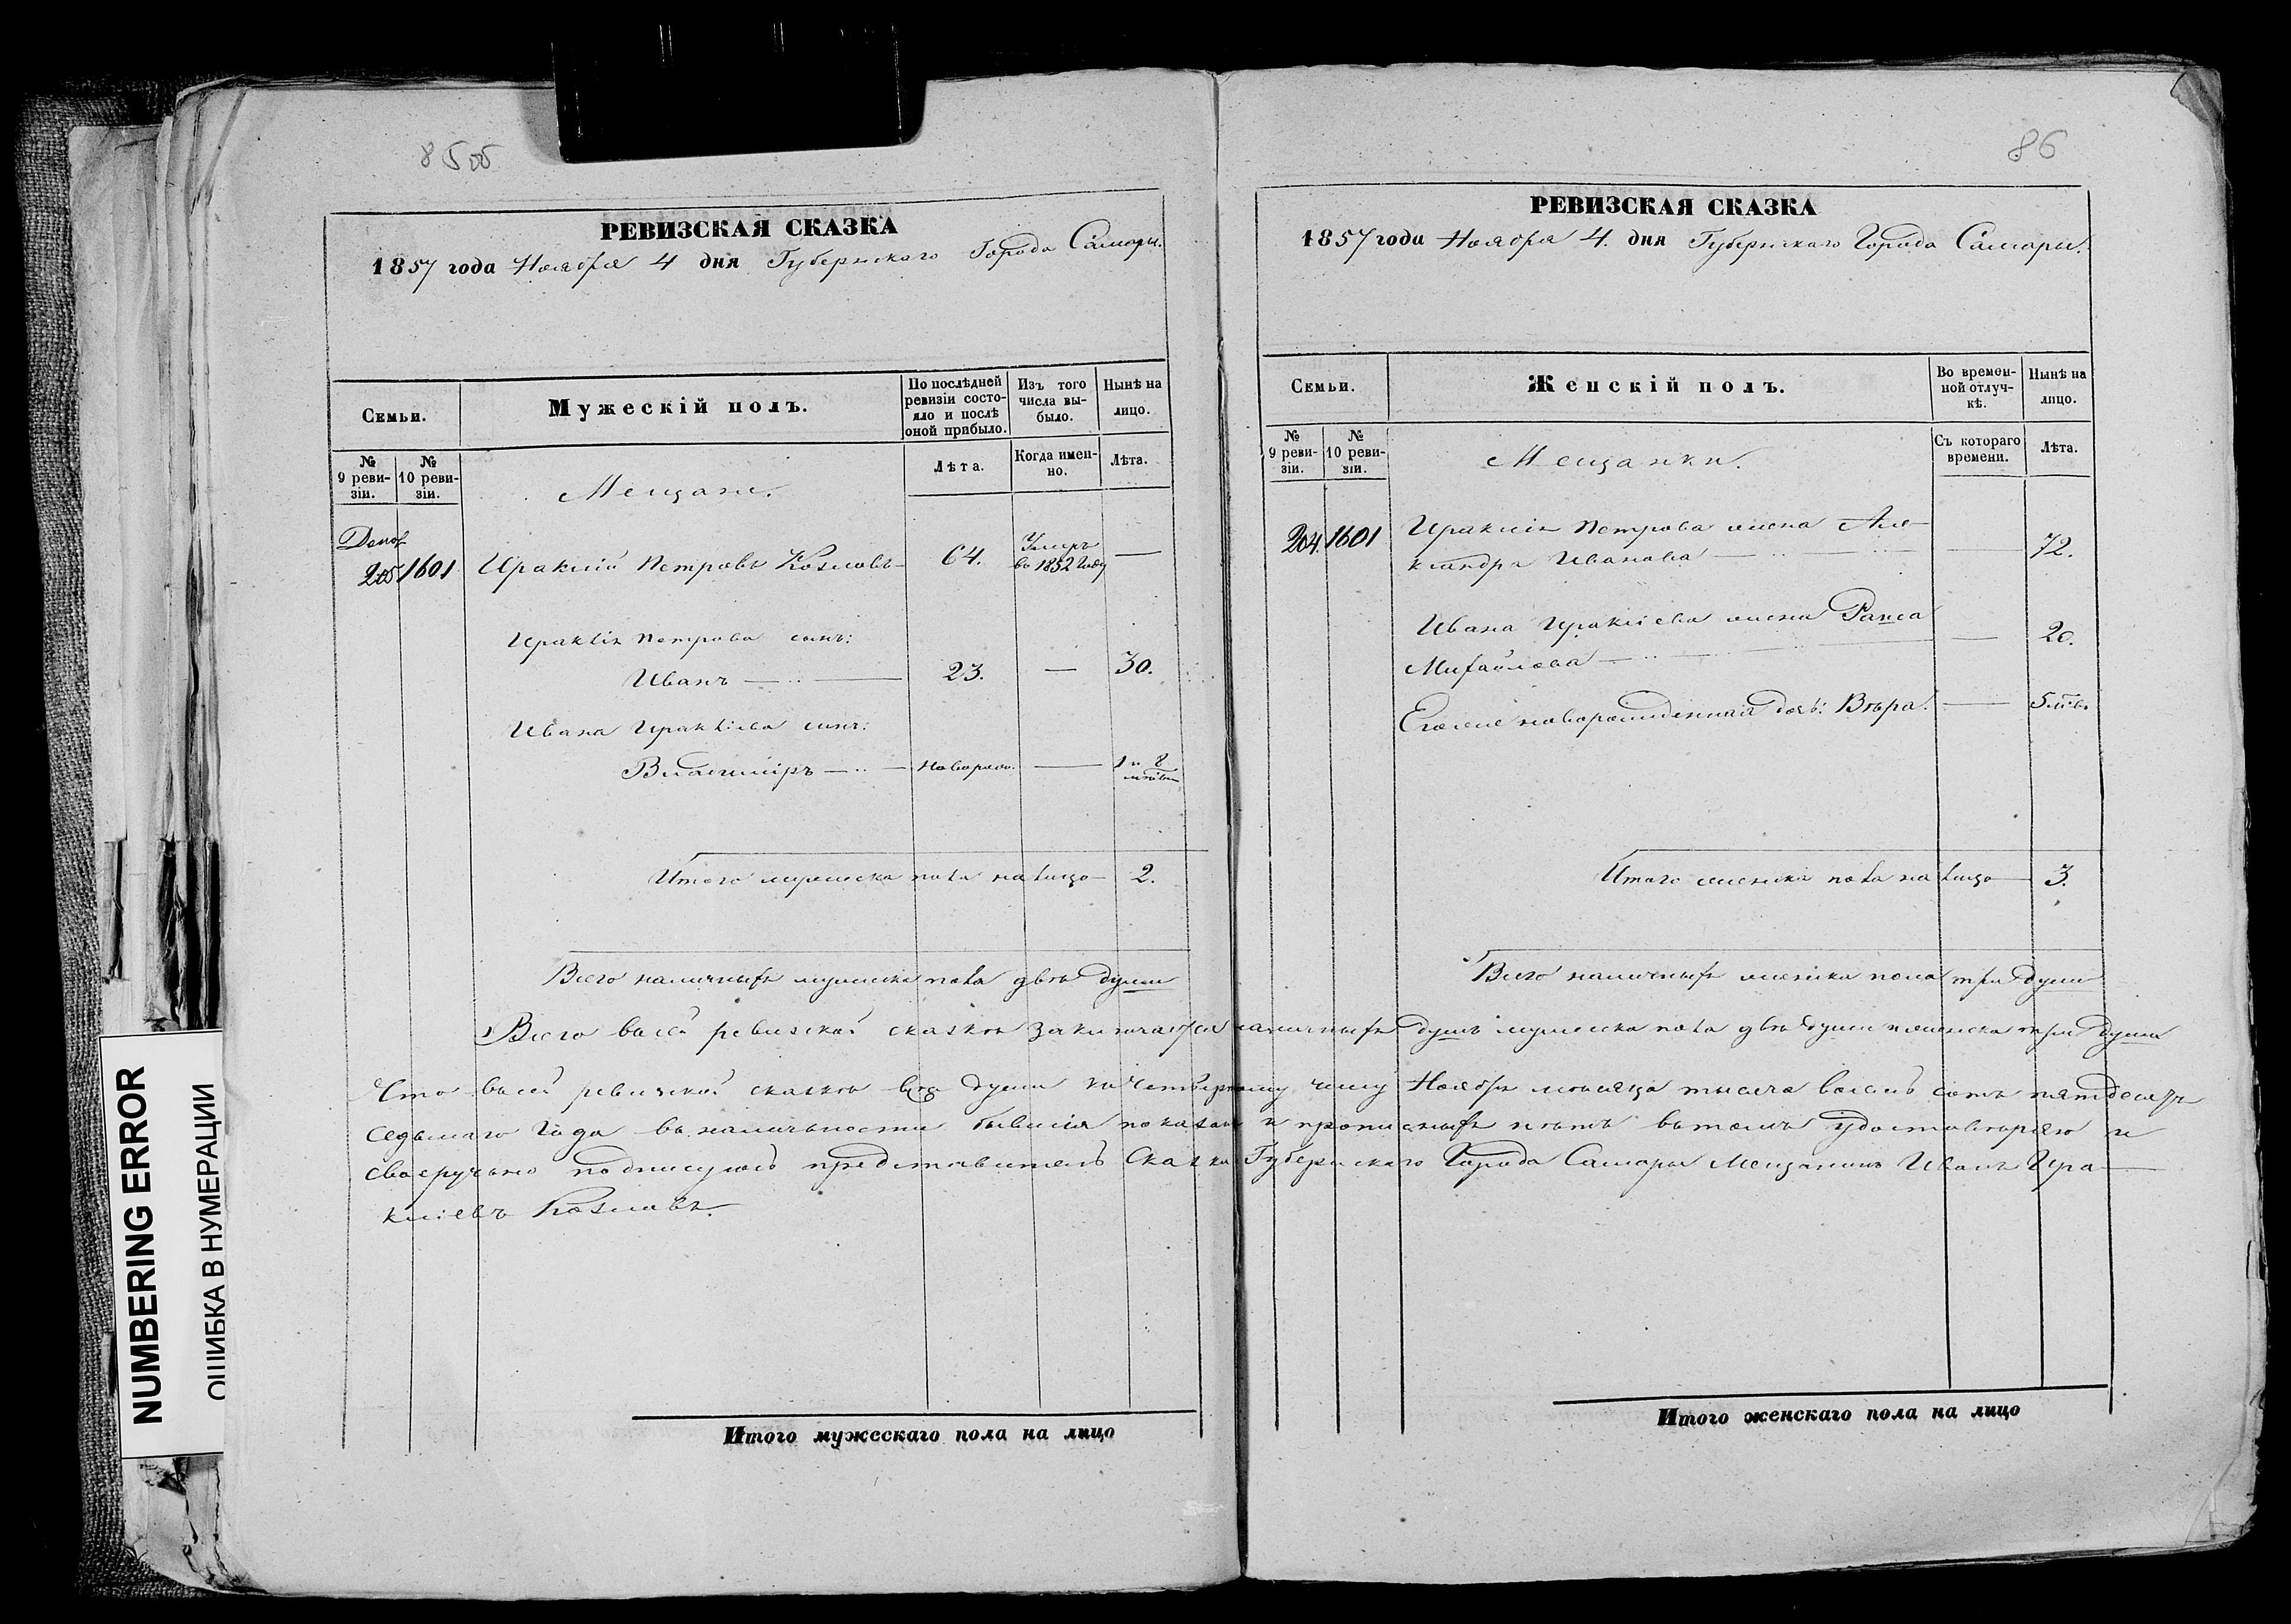 85об
РЕВИЗСКАЯ СКАЗКА
1857 года Ноября 4 дня Губернскаго Города Самары.
Семьи.
Мужескій полъ.
По послѣдней ревизіи состояло и послѣ оной прибыло.
Изъ того числа выбыло.
Нынѣ на лицо.
№ 9 ревизіи.
№ 10 ревизіи.
Лѣта.
Когда именно.
Лѣта.
Мещане.
Допол
205 1601 Ираклій Петровъ Козловъ 64. Умеръ въ 1852 году —
Ираклія Петрова сынъ:
Иванъ 23. — 30.
Ивана Ираклiева сынъ:
Владиміръ новорож. — 1 и 8 мѣсяц
Итого мужеска пола на лицо 2.
Всего наличныхъ мужеска пола двѣ души
86
РЕВИЗСКАЯ СКАЗКА
1857 года Ноября 4. дня Губернскаго Города Самары.
Семьи.
Женскій полъ.
Во временной отлучкѣ.
Нынѣ на лицо.
№ 9 ревизіи.
№ 10 ревизіи.
Съ котораго времени.
Лѣта.
Мещанки.
204. 1601 Ираклія Петрова жена Але-
ксандра Иванова — 72.
Ивана Ираклiева жена Раиса
Михайлова — 20.
Егоже новорожденная дочь: Вѣра. — 5 мѣс.
Итого женска пола на лицо 3.
Всего наличныхъ женска пола три души
Всего в сей ревизской сказкѣ заключается наличныхъ душъ мужеска пола двѣ души и женска три души
Что в сей ревизской сказкѣ всѣ души к четвертому числу Ноября мѣсяца тысяча восемь сотъ пятдесятъ
седьмаго года въ наличности бывшія показаны и прописныхъ нѣтъ въ томъ удостовѣряю и
своеручно подписуюсь представитель сказки Губернскаго Города Самары Мещанинъ Иванъ Ира-
клiевъ Козловъ.
Итого мужескаго пола на лицо
Итого женскаго пола на лицо
NUMBERING ERROR
ОШИБКА В НУМЕРАЦИИ